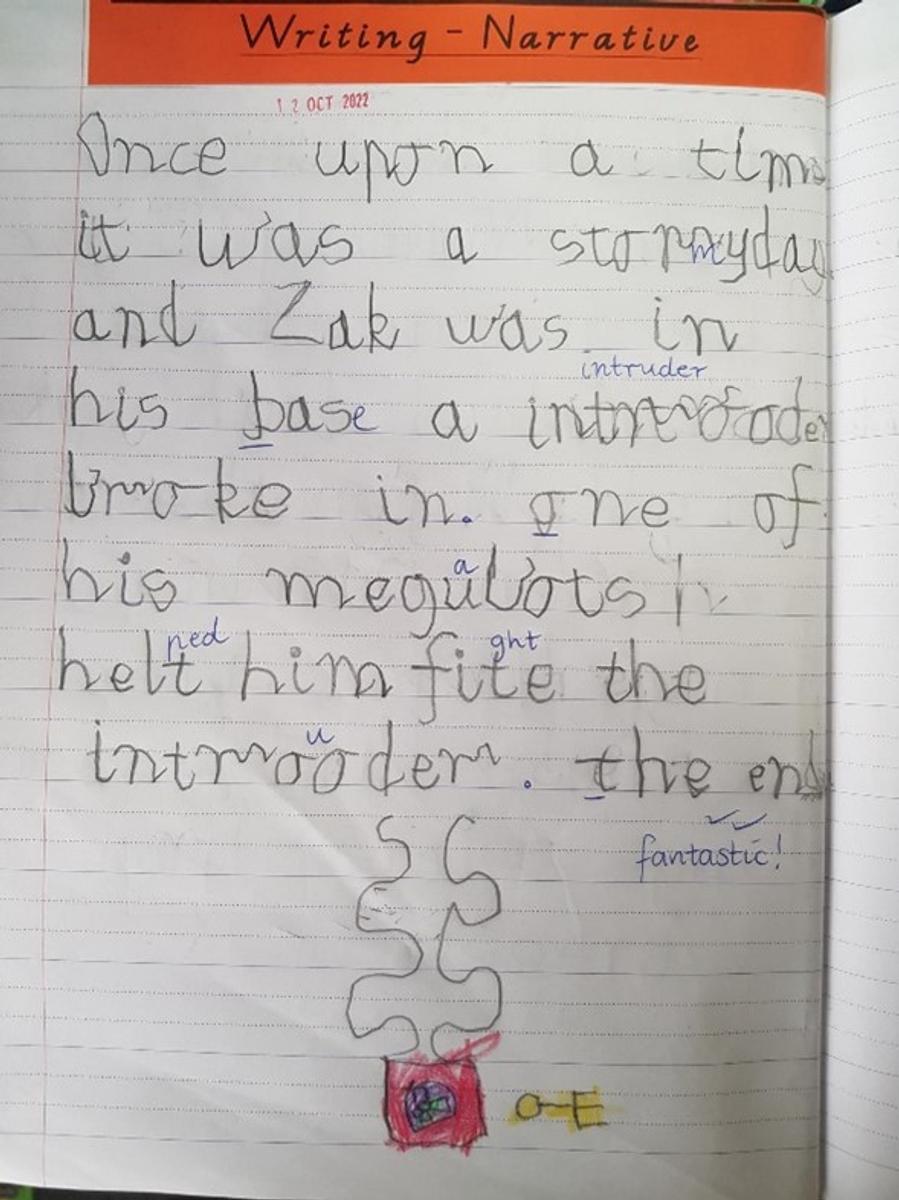 Writing - Narrative
12 OCT 2022
Once upon a time
it was a stormyday
and Zak was in
intruder
his base a introoder
broke in. one of
a
his megubots
ped ght
helt him fite the
u
introoder. the end
fantastic!